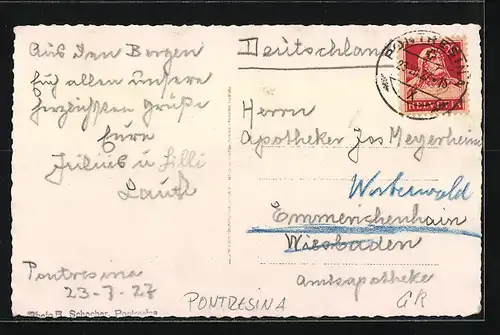 Aus den Bergen
Euch allen unsere
herzlichsten Grüße
Eure
Julius u Lilli
Lauth
Pontresina
23-7-27
Photo B. Schocher, Pontresina
PONTRESINA
Deutschland
PONTRESINA
HELVETIA
Herrn
Apotheker Jos Meyerheim
Westerwald
Emmerichenhain
Wiesbaden
Amtsapotheke
GR